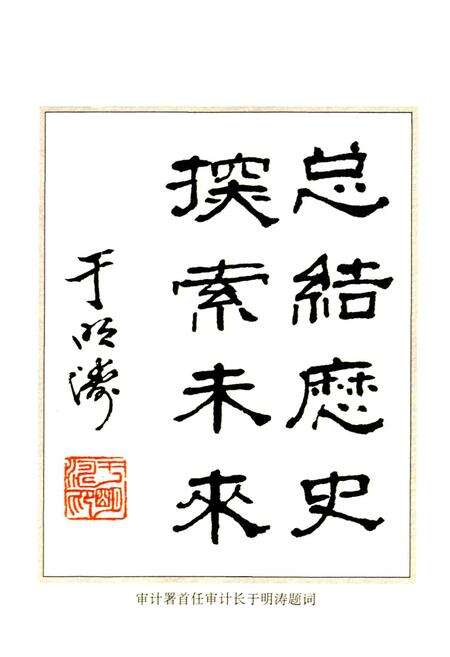 总结歷史
探索未來
于明涛
审计署首任审计长于明涛题词